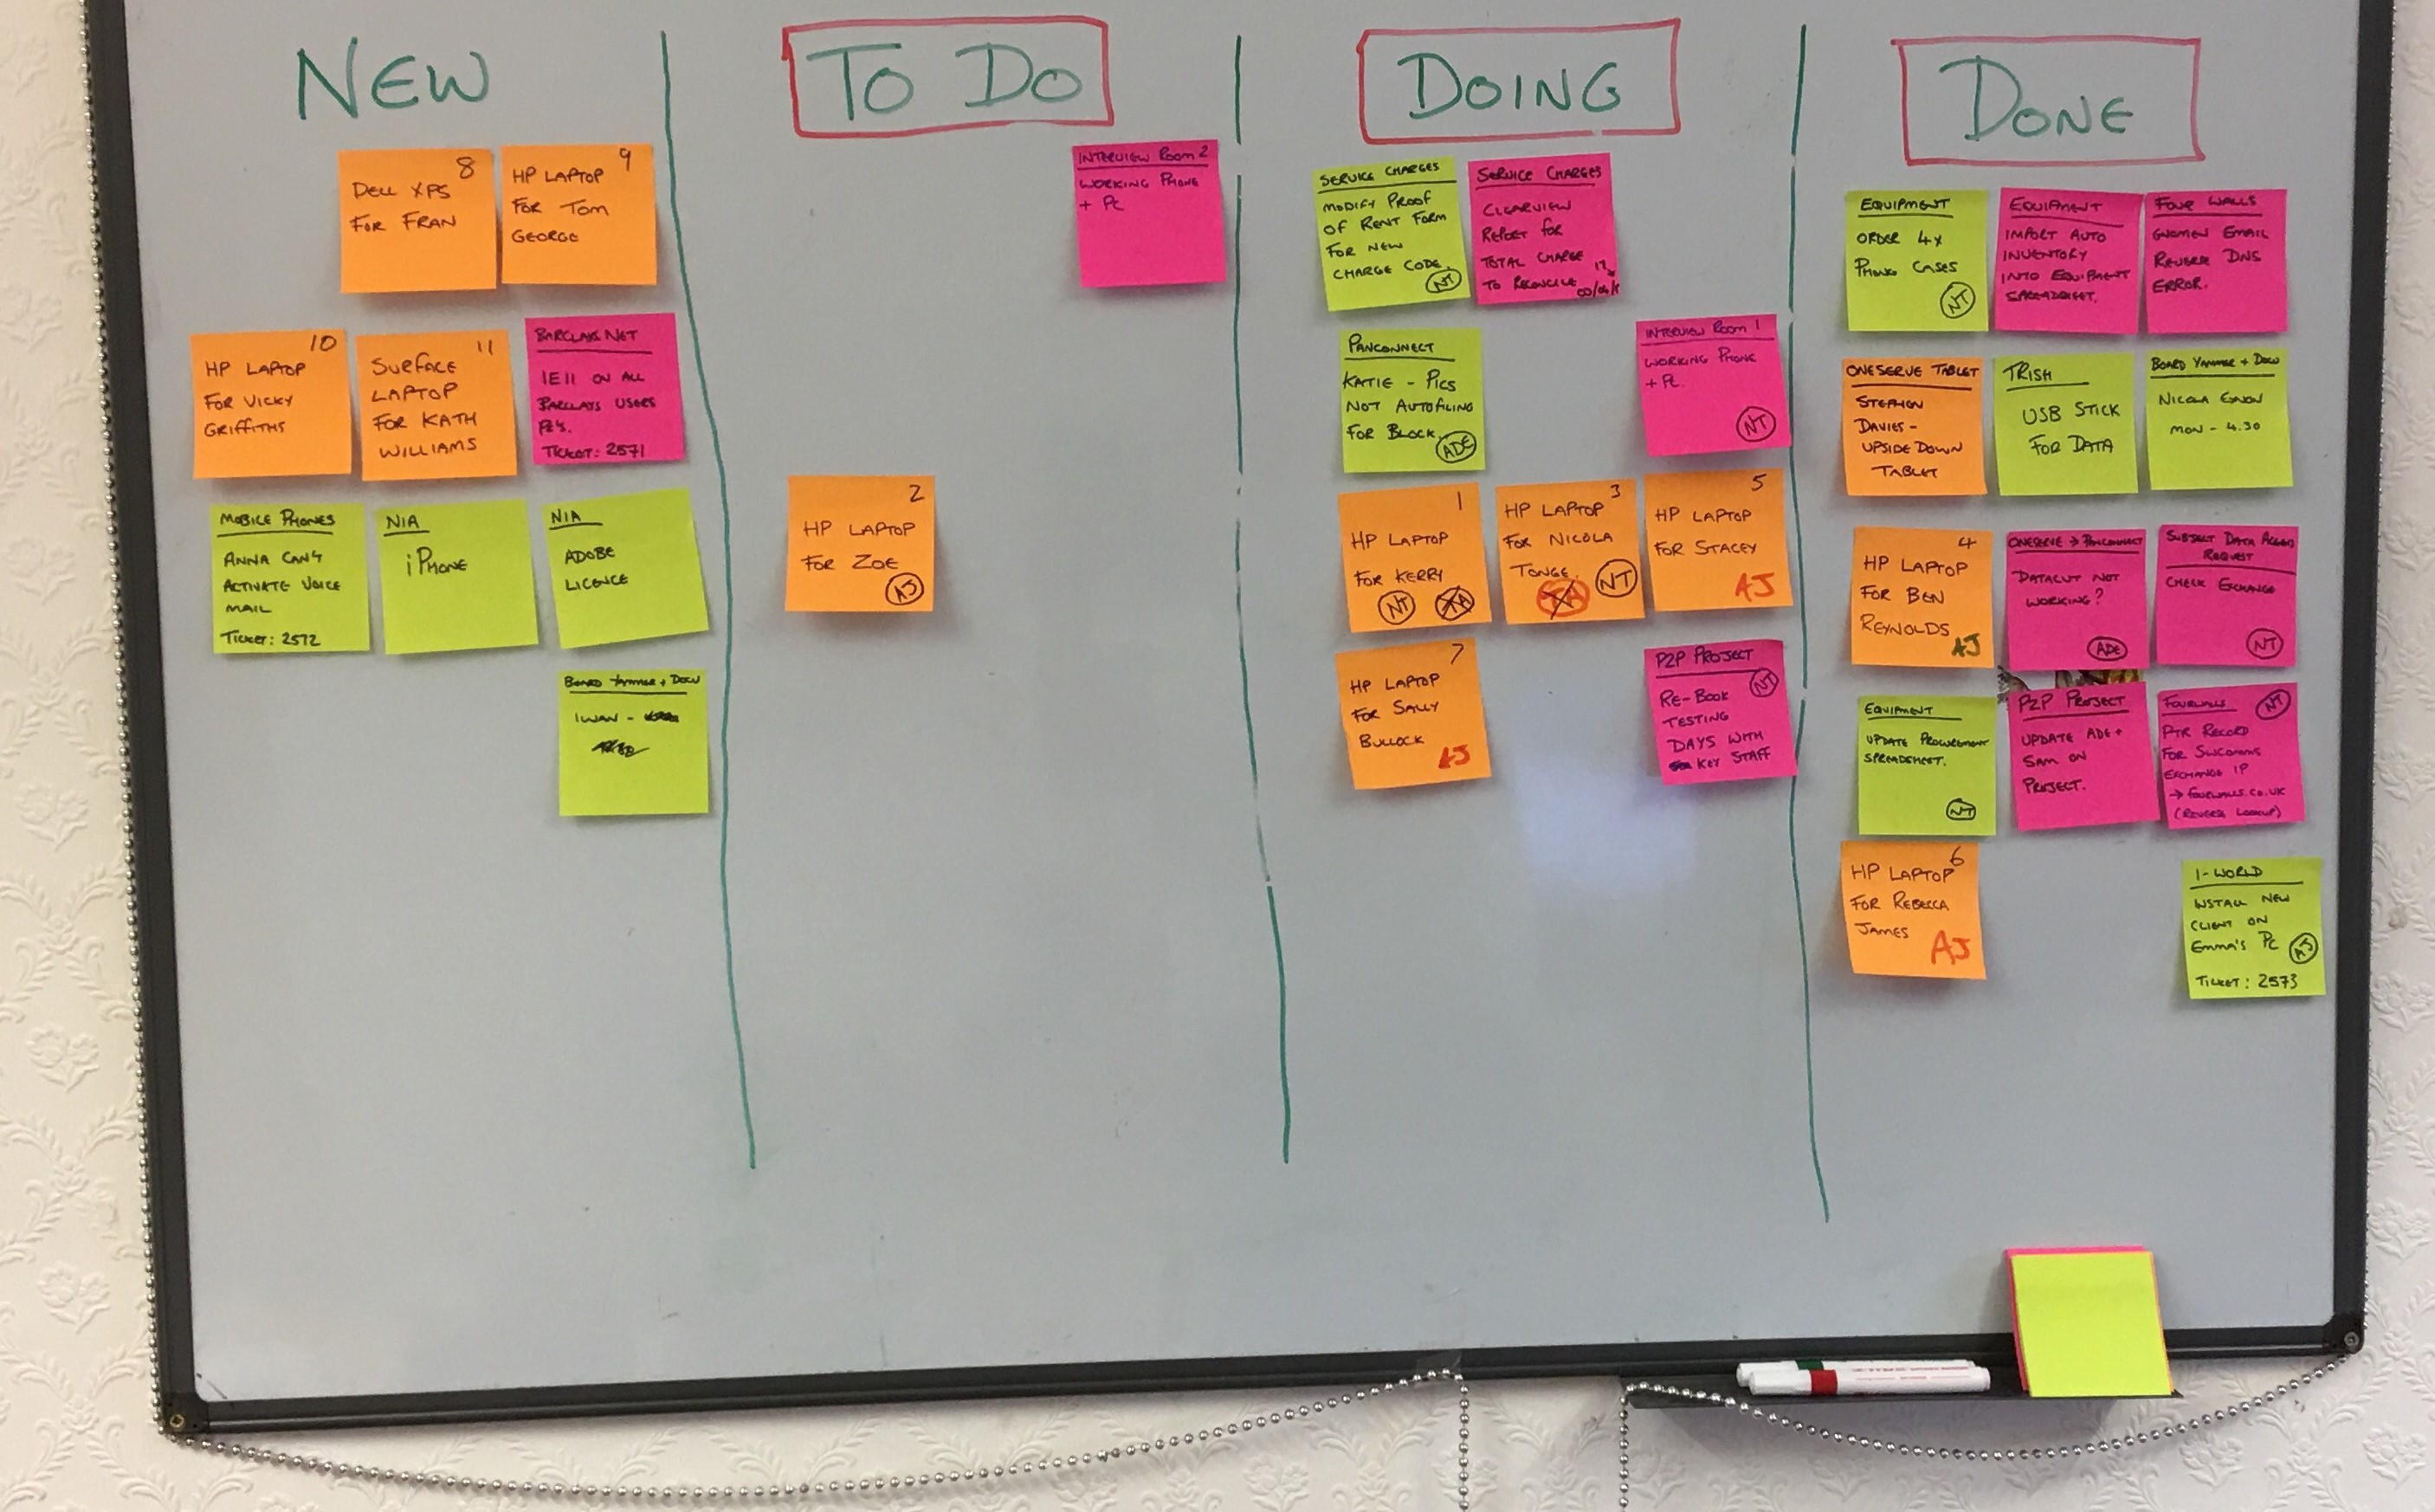 NEW
8
DELL XPS
FOR FRAN
9
HP LAPTOP
FOR TOM
GEORGE
10
HP LAPTOP
FOR VICKY
GRIFFITHS
11
SURFACE
LAPTOP
FOR KATH
WILLIAMS
BARCLAYS NET
IE11 ON ALL
BARCLAYS USERS
PC'S.
TICKET: 2571
MOBILE PHONES
ANNA CAN'T
ACTIVATE VOICE
MAIL
TICKET: 2572
NIA
iPHONE
NIA
ADOBE
LICENCE
BOARD YAMMER + DOCU
IWAN -
TO DO
INTERVIEW ROOM 2
WORKING PHONE
+ PC
2
HP LAPTOP
FOR ZOE
AJ
DOING
SERVICE CHARGES
MODIFY PROOF
OF RENT FORM
FOR NEW
CHARGE CODE.
NT
SERVICE CHARGES
CLEARVIEW
REPORT FOR
TOTAL CHARGE
TO RECONCILE
PANCONNECT
KATIE - PICS
NOT AUTOFILING
FOR BLOCK.
ADE
INTERVIEW ROOM 1
WORKING PHONE
+ PC.
NT
1
HP LAPTOP
FOR KERRY
NT
3
HP LAPTOP
FOR NICOLA
TONGE.
NT
5
HP LAPTOP
FOR STACEY
AJ
7
HP LAPTOP
FOR SALLY
BULLOCK
AJ
P2P PROJECT
NT
RE-BOOK
TESTING
DAYS WITH
KEY STAFF
DONE
EQUIPMENT
ORDER 4x
PHONE CASES
NT
EQUIPMENT
IMPORT AUTO
INVENTORY
INTO EQUIPMENT
SPREADSHEET.
FOUR WALLS
GWOMEN EMAIL
REVERSE DNS
ERROR.
ONESERVE TABLET
STEPHEN
DAVIES -
UPSIDE DOWN
TABLET
TRISH
USB STICK
FOR DATA
BOARD YAMMER + DOCU
NICOLA
MON - 4.30
4
HP LAPTOP
FOR BEN
REYNOLDS
AJ
ONESERVE → PANCONNECT
DATACUT NOT
WORKING?
ADE
SUBJECT DATA ACCESS
REQUEST
CHECK EXCHANGE
NT
EQUIPMENT
UPDATE PROCUREMENT
SPREADSHEET.
NT
P2P PROJECT
UPDATE ADE +
SAM ON
PROJECT.
FOURWALLS
NT
PTR RECORD
FOR SWCOMMS
EXCHANGE IP
→ FOURWALLS.CO.UK
(REVERSE LOOKUP)
6
HP LAPTOP
FOR REBECCA
JAMES
AJ
1-WORLD
INSTALL NEW
CLIENT ON
EMMA'S PC
AJ
TICKET: 2573